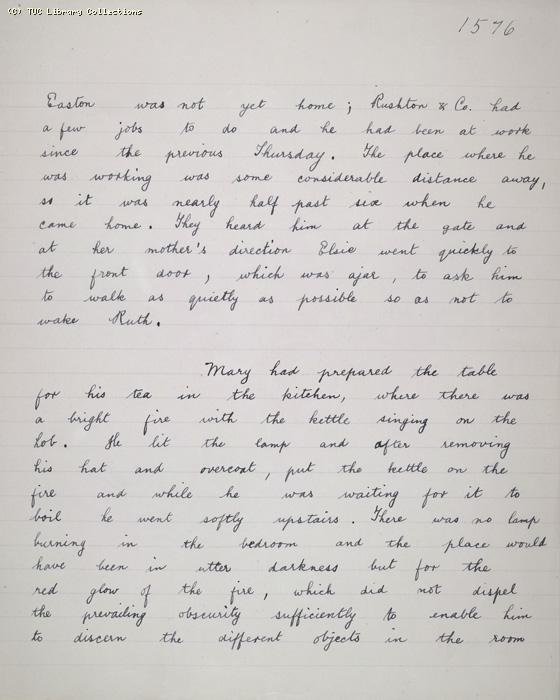 (C) TUC Library Collections
1576
Easton was not yet home; Rushton & Co. had
a few jobs to do and he had been at work
since the previous Thursday. The place where he
was working was some considerable distance away,
so it was nearly half past six when he
came home. They heard him at the gate and
at her mother's direction Elsie went quickly to
the front door, which was ajar, to ask him
to walk as quietly as possible so as not to
wake Ruth.
Mary had prepared the table
for his tea in the kitchen, where there was
a bright fire with the kettle singing on the
hob. He lit the lamp and after removing
his hat and overcoat, put the kettle on the
fire and while he was waiting for it to
boil he went softly upstairs. There was no lamp
burning in the bedroom and the place would
have been in utter darkness but for the
red glow of the fire, which did not dispel
the prevailing obscurity sufficiently to enable him
to discern the different objects in the room